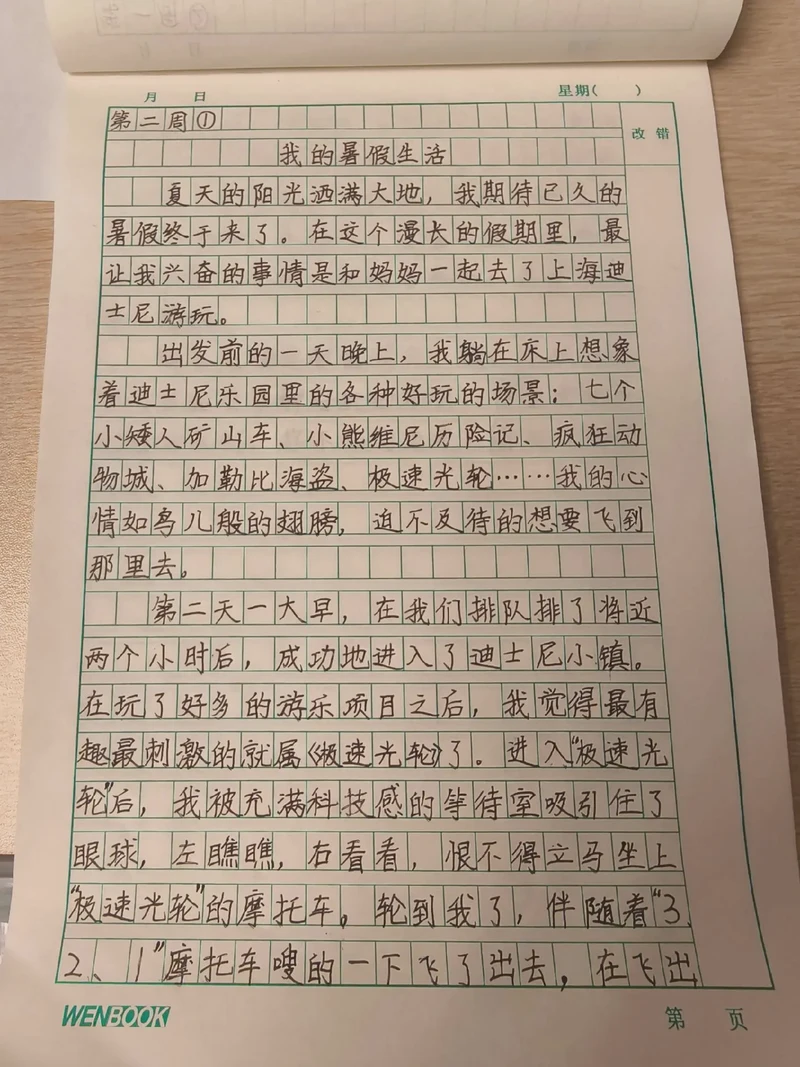 月 日 星期( )
第二周① 改错
我的暑假生活
夏天的阳光洒满大地，我期待已久的
暑假终于来了。在这个漫长的假期里，最
让我兴奋的事情是和妈妈一起去了上海迪
士尼游玩。
出发前的一天晚上，我躺在床上想象
着迪士尼乐园里的各种好玩的场景：七个
小矮人矿山车、小熊维尼历险记、疯狂动
物城、加勒比海盗、极速光轮……我的心
情如鸟儿般的翅膀，迫不及待的想要飞到
那里去。
第二天一大早，在我们排队排了将近
两个小时后，成功地进入了迪士尼小镇。
在玩了好多的游乐项目之后，我觉得最有
趣最刺激的就属《极速光轮》了。进入“极速光
轮”后，我被充满科技感的等待室吸引住了
眼球，左瞧瞧，右看看，恨不得立马坐上
“极速光轮”的摩托车。轮到我了，伴随着“3、
2、1”摩托车嗖的一下飞了出去，在飞出
WENBOOK 第 页